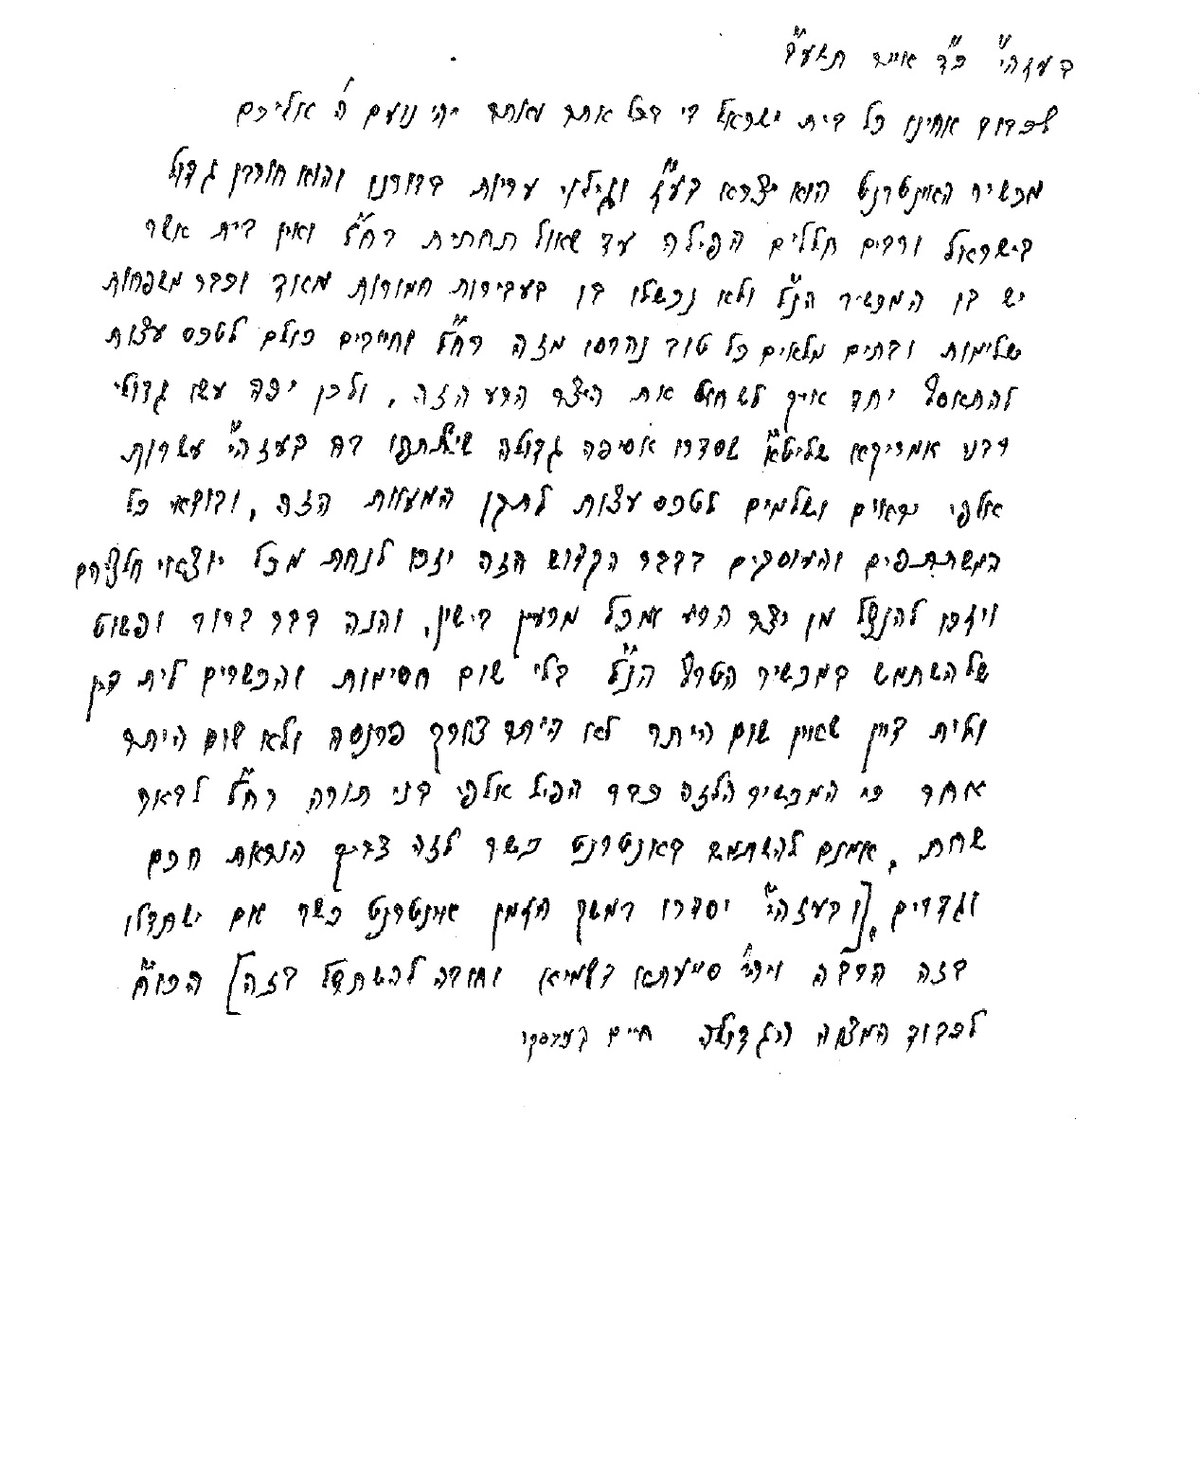 בעזהי"ת כ"ד אייר תשע"ב
לכבוד אחינו כל בית ישראל די בכל אתר ואתר יהי נועם ה' אליכם
מכשיר האינטרנט הוא יצרא דע"ז וגילוי עריות בדורנו והוא חורבן גדול
בישראל ורבים חללים הפילה עד שאול תחתית רח"ל ואין בית אשר
יש בו המכשיר הנ"ל ולא נכשלו בו בעבירות חמורות מאוד וכבר משפחות
שלימות ובתים מלאים כל טוב נהרסו מזה רח"ל וחייבים כולם לטכס עצות
להתאסף יחד איך לשחול את היצר הרע הזה, ולכן יפה עשו גדולי
רבני אמריקא שליט"א שסדרו אסיפה גדולה שישתתפו בה בעזהי" עשרות
אלפי יראים ושלמים לטכס עצות לתקן המעוות הזה, ובודאי כל
המשתתפים והעוסקים בדבר הקדוש הזה יזכו לנחת מכל יוצאי חלציהם
ויזכו להנצל מן יצר הרע ומכל מרעין בישין, והנה דבר ברור ופשוט
שלהשתמש במכשיר הטרף הנ"ל בלי שום חסימות והכשרים לית דין
ולית דיין שאין שום היתר לא היתר צורך פרנסה ולא שום היתר
אחר כי המכשיר הלזה כבר הפיל אלפי בני תורה רח"ל לבאר
שחת, אמנם להשתמש באנטרנט כשר לזה צריך הוראת חכם
וגדרים, [ובעזהי" יסדרו במשך הזמן אינטרנט כשר אם ישתדלו
בזה הרבה ויהי' סייעתא דשמיא וחובה להשתדל בזה] הכו"ח
לכבוד המצוה הגדולה חיים קניבסקי